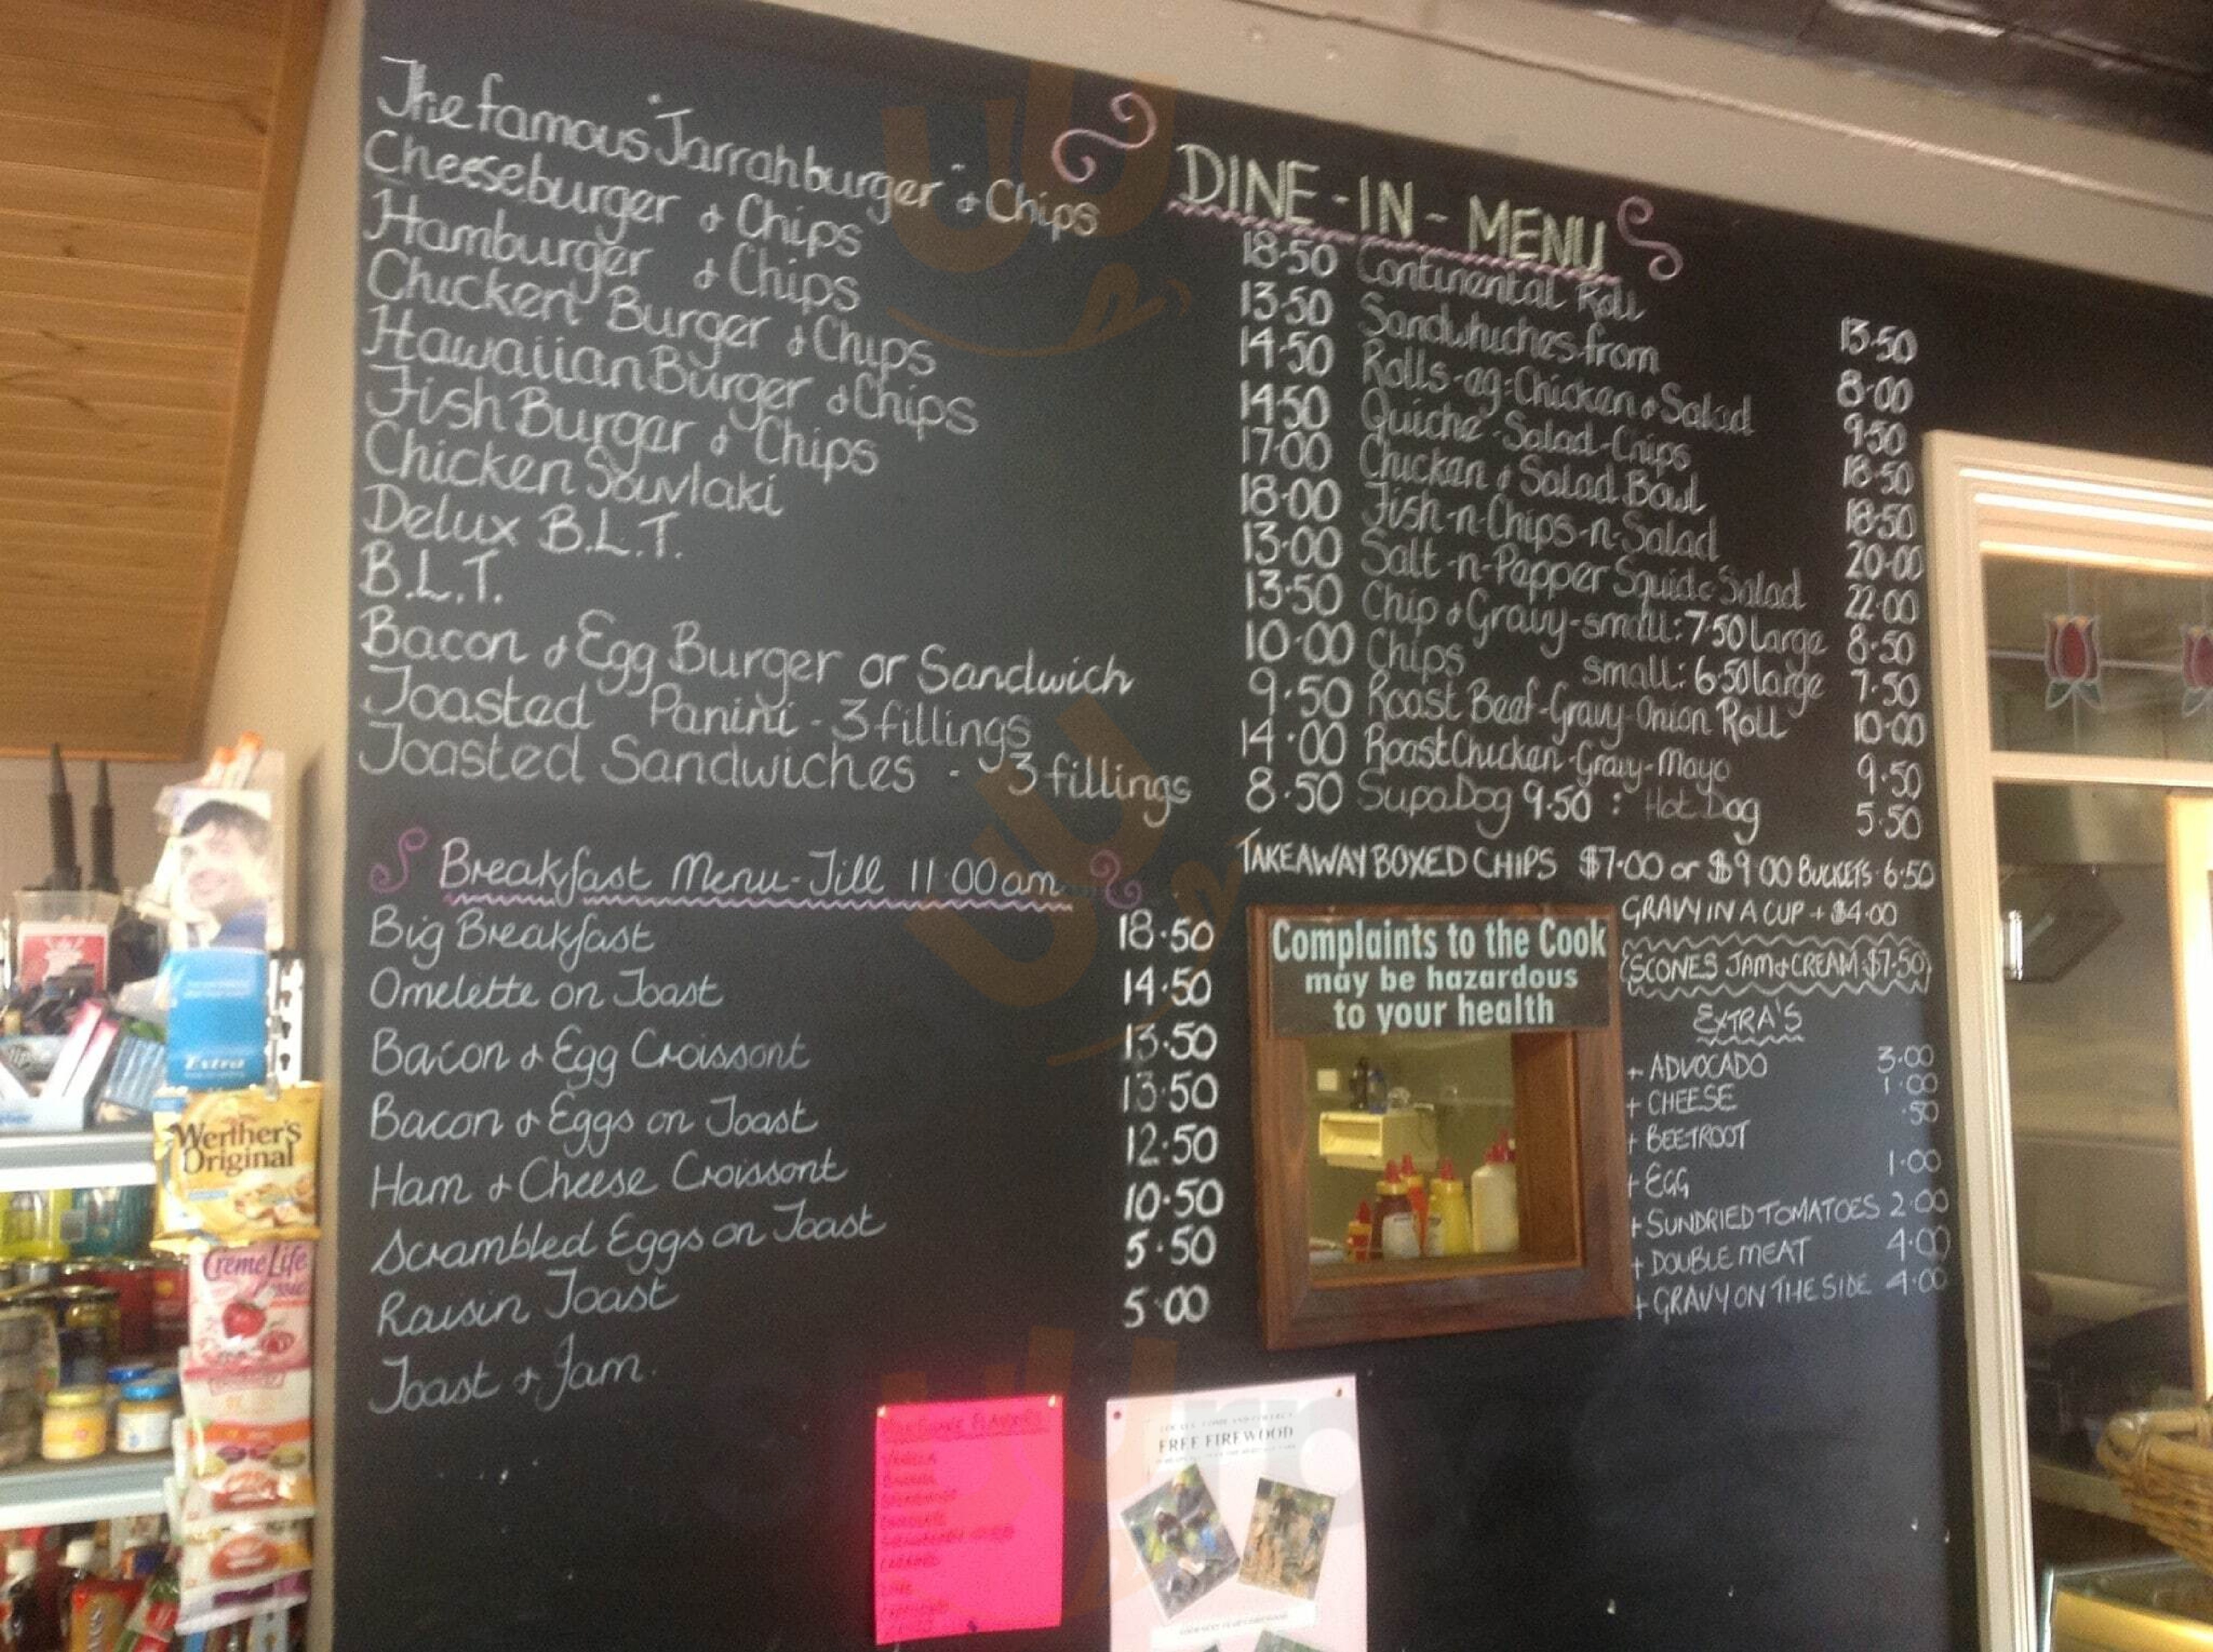 DINE-IN-MENU
The famous "Jarrahburger" & Chips 18·50
Cheeseburger & Chips 13·50
Hamburger & Chips 14·50
Chicken Burger & Chips 14·50
Hawaiian Burger & Chips 17·00
Fish Burger & Chips 18·00
Chicken Souvlaki 13·00
Delux B.L.T. 13·50
B.L.T. 10·00
Bacon & Egg Burger or Sandwich 9·50
Toasted Panini - 3 fillings 14·00
Toasted Sandwiches - 3 fillings 8·50
Continental Roll 13·50
Sandwhiches from 8·00
Rolls-eg: Chicken & Salad 9·50
Quiche-Salad-Chips 18·50
Chicken & Salad Bowl 18·50
Fish-n-Chips-n-Salad 20·00
Salt-n-Pepper Squid & Salad 22·00
Chip & Gravy-small: 7·50 large 8·50
Chips small: 6·50 large 7·50
Roast Beef-Gravy-Onion Roll 10·00
Roast Chicken-Gravy-Mayo 9·50
Supa Dog 9·50 : Hot Dog 5·50
TAKEAWAY BOXED CHIPS $7·00 or $9·00 BUCKETS·6·50
GRAVY IN A CUP + $4·00
SCONES JAM & CREAM·$7·50
Breakfast Menu-Till 11:00am
Big Breakfast 18·50
Omelette on Toast 14·50
Bacon & Egg Croissont 13·50
Bacon & Eggs on Toast 13·50
Ham & Cheese Croissont 12·50
Scrambled Eggs on Toast 10·50
Raisin Toast 5·50
Toast & Jam. 5·00
Complaints to the Cook
may be hazardous
to your health
EXTRA'S
+ ADVOCADO 3·00
+ CHEESE 1·00
+ BEETROOT ·50
+ EGG 1·00
+ SUNDRIED TOMATOES 2·00
+ DOUBLE MEAT 4·00
+ GRAVY ON THE SIDE 4·00
Extra
Werther's
Original
Creme Life
VANILLA
FREE FIREWOOD